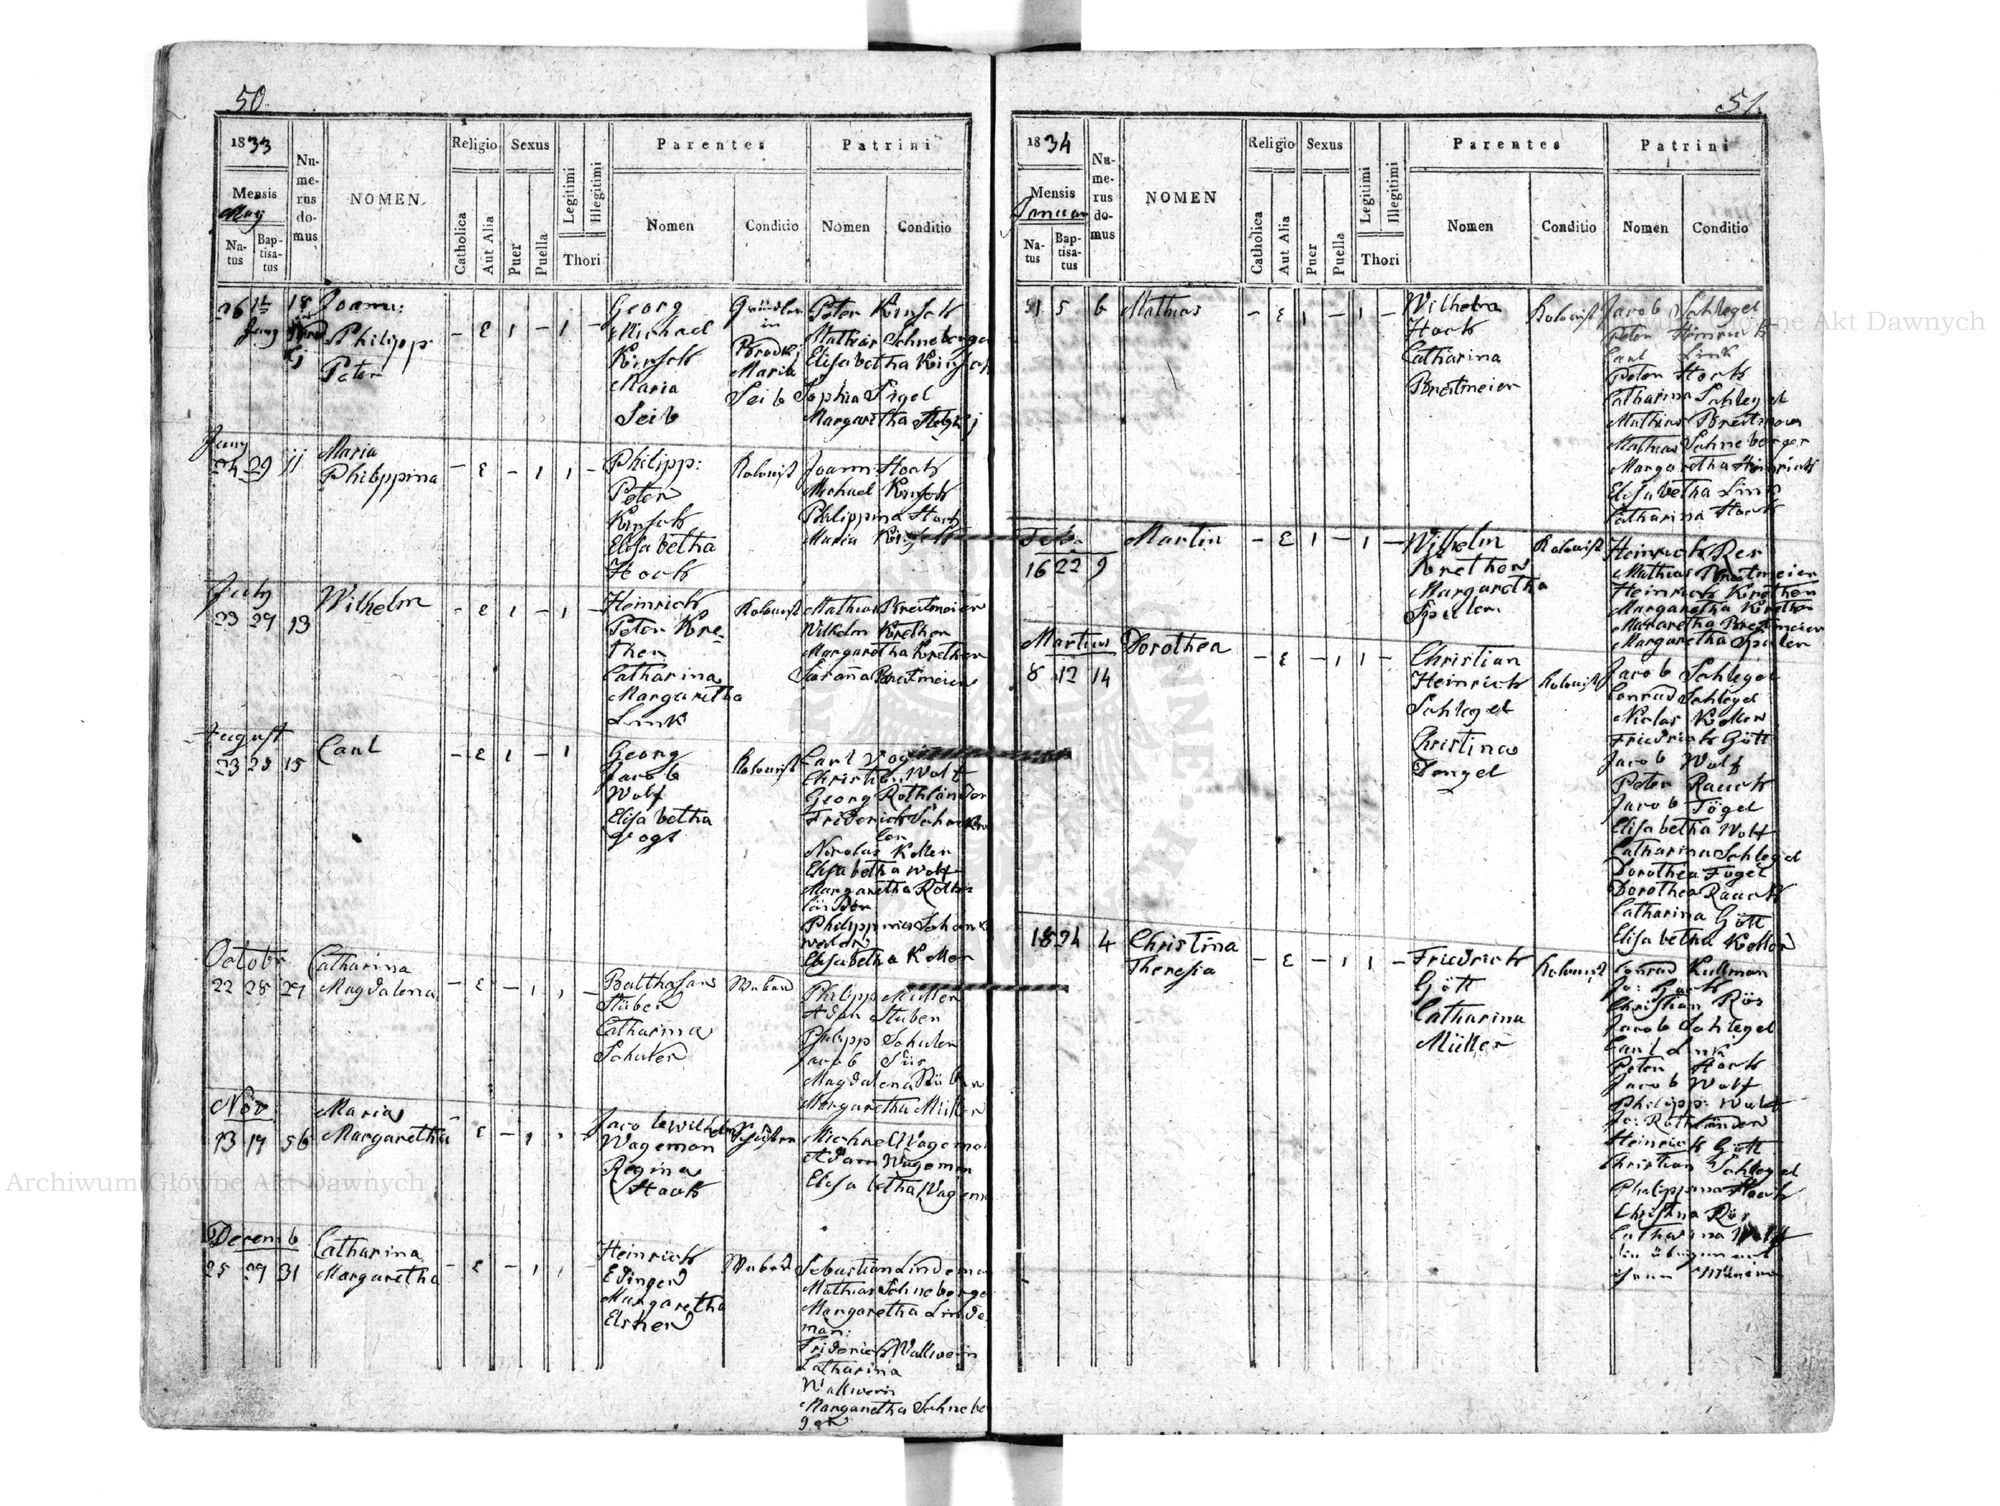 50.
1833
Mensis
May
Na-
tus
Bap-
tisa-
tus
Nu-
me-
rus
do-
mus
NOMEN
Religio
Catholica
Aut Alia
Sexus
Puer
Puella
Legitimi
Illegitimi
Thori
Parentes
Nomen
Conditio
Patrini
Nomen
Conditio
26 12 18 Joann:
Juny
Philipp
Peter
- E 1 - 1
Georg
Michael
Kinsch
Maria
Seib
in
Brodki
Maria
Seib
Peter Kinsch
Mathias Schneberger
Elisabetha Kinsch
Sophia Sigel
Margaretha
Juny
24 29 11 Maria
Philippina
- E - 1 1 -
Philipp:
Peter
Kinsch
Elisabetha
Hoch
Kolonist
Joann Hoch
Michael Kinsch
Philippina Hoch
Maria Kinsch
July
23 29 13 Wilhelm
- E 1 - 1 -
Heinrich
Peter Kre-
ther
Catharina
Margaretha
Link
Kolonist
Mathias Breitmeier
Wilhelm Krether
Margaretha Krether
Breitmeier
August
23 25 15 Carl
- E 1 - 1
Georg
Jacob
Wolf
Elisabetha
Vogt
Kolonist
Carl Vogt
Christi. Wolf
Georg Rothländer
Friderich
Nicolas Koller
Elisabetha Wolf
Margaretha Roth-
länder
Philippina
Elisabetha Koller
Octobr
22 28 27 Catharina
Magdalena
- E - 1 1 -
Balthasar
Stuber
Catharina
Schuler
Weber
Philipp Müller
Adam Stuber
Philipp Schuler
Jacob Süs
Magdalena
Margaretha Müller
Nov
13 17 56 Maria
Margaretha
- E - 1 1 -
Jacob Wilhelm
Wageman
Regina
Hoch
Michael Wageman
Adam Wageman
Elisabetha Wagem
Decemb
25 29 31 Catharina
Margaretha
- E - 1 1 -
Heinrich
Edinger
Margaretha
Elsner
Weber
Sebastian Lindeman
Mathias Schneberge
Margaretha Linde
man:
Friderich Wallwein
Catharina
Wallwein
Margaretha Schnebe
ger
51.
1834
Mensis
Januar
Na-
tus
Bap-
tisa-
tus
Nu-
me-
rus
do-
mus
NOMEN
Religio
Catholica
Aut Alia
Sexus
Puer
Puella
Legitimi
Illegitimi
Thori
Parentes
Nomen
Conditio
Patrini
Nomen
Conditio
5 6 Mathias
- E 1 - 1 -
Wilhelm
Hoch
Catharina
Breitmeier
Kolonist
Jacob Schlegel
Peter Heinrich
Carl Link
Peter Hoch
Catharina Schlegel
Mathias Breitmeier
Mathias Schneberger
Margaretha Heinrich
Elisabetha Link
Catharina Hoch
Feb.
16 22 9 Martin
- E 1 - 1 -
Wilhelm
Krether
Margaretha
Spuler
Kolonist
Heinrich Res
Mathias Breitmeier
Heinrich Krether
Margaretha Krether
Margaretha Breitmeier
Margaretha Spuler
Martius
8 12 14 Dorothea
- E - 1 1 -
Christian
Heinrich
Schlegel
Christina
Dengel
Kolonist
Jacob Schlegel
Conrad Schlegel
Niclas Koller
Friedrich Gött
Jacob Wolf
Peter Rauch
Jacob Fögel
Elisabetha Wolf
Catharina Schlegel
Dorothea Fögel
Dorothea Rauch
Catharina Gött
Elisabetha Koller
18 24 4 Christina
Theresia
- E - 1 1 -
Friedrich
Gött
Catharina
Müller
Kolonist
Conrad Kullman
Christian Rös
Jacob Schlegel
Carl Link
Peter Hoch
Jacob Wolf
Philipp: Wolf
Jo: Rothländer
Heinrich Gött
Christian Schlegel
Philippina Hoch
Christina Rös
Catharina Wolf
Archiwum Główne Akt Dawnych
Archiwum Główne Akt Dawnych